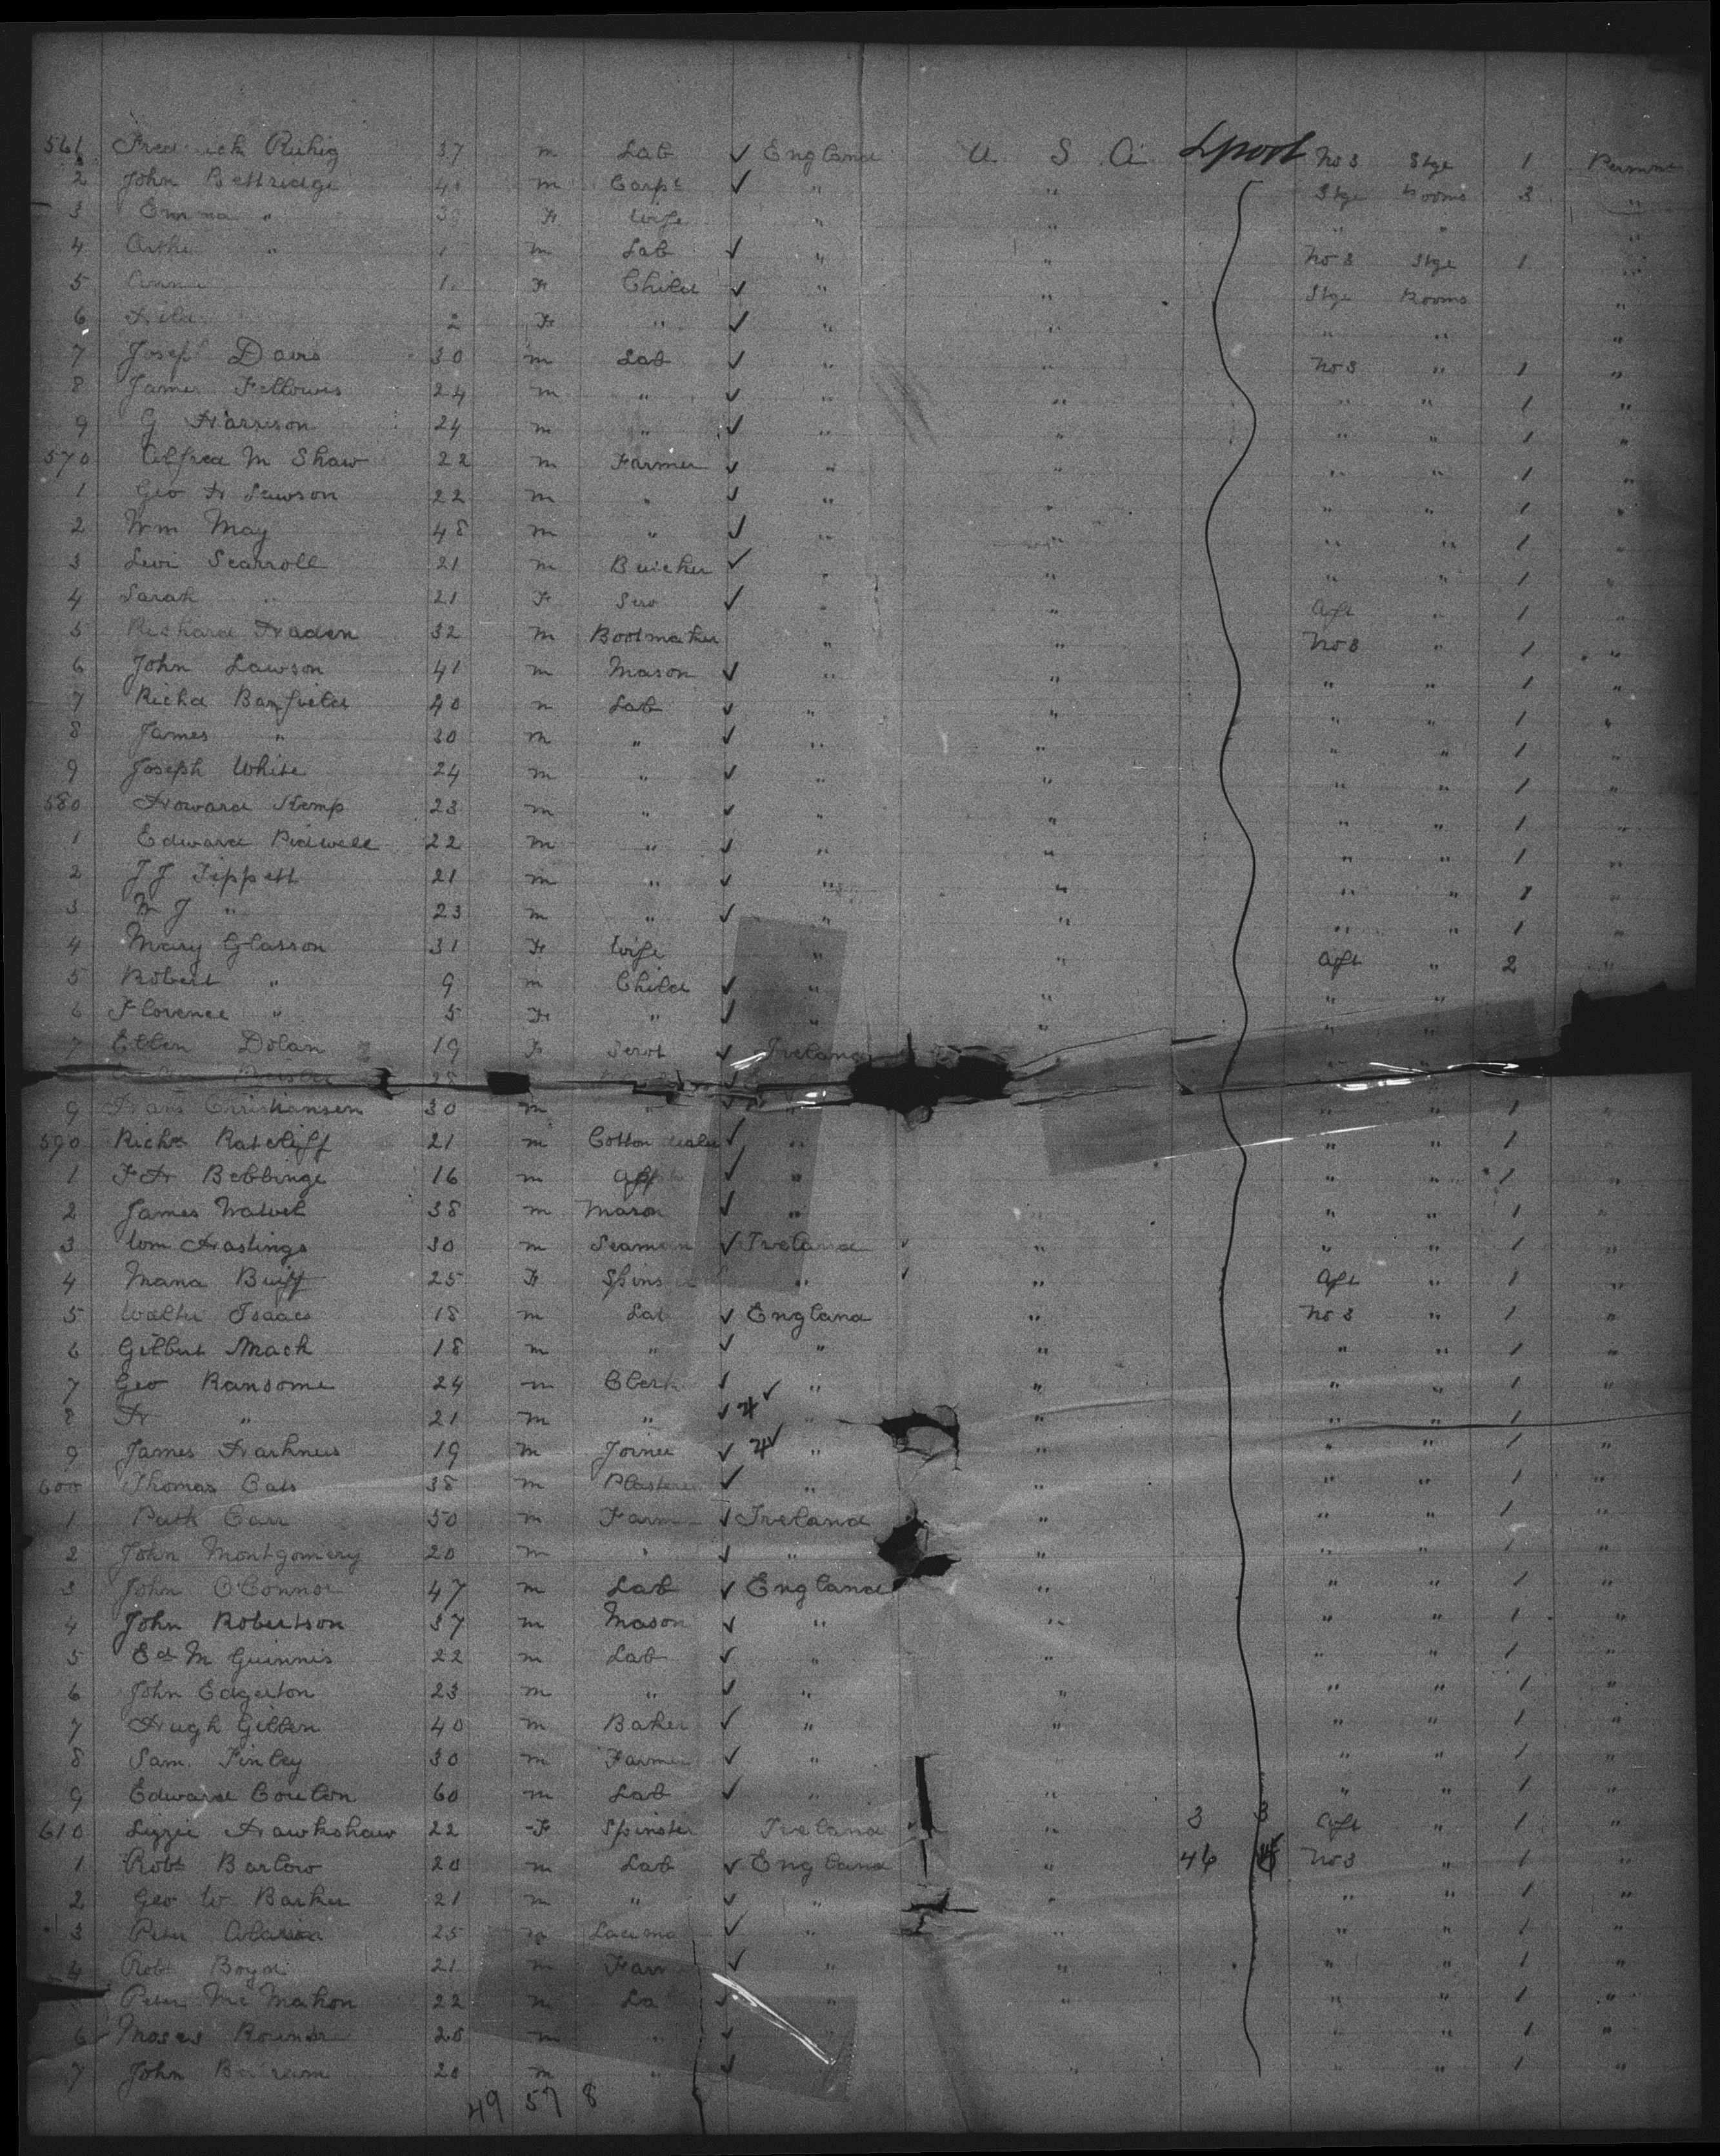 561 Frederick Ruhig 37 m Lab ✓ England U S A Lpool No 3 Stge 1 Permnt
2 John Bettridge m Carpt ✓ " " Stge Rooms 3 "
3 Emma " F Wife " " " " "
4 " m Lab ✓ " " No 3 Stge 1 "
5 F Child ✓ " " Stge Rooms "
6 2 F " ✓ " " " " "
7 Joseph Davis 30 m Lab ✓ " " No 3 " 1 "
8 James Fellows 24 m " ✓ " " " " 1 "
9 G Harrison 24 m " ✓ " " " " 1 "
570 Alfred M Shaw 22 m Farmer ✓ " " " " 1 "
1 Geo H Lawson 22 m " ✓ " " " " 1 "
2 Wm May 48 m " ✓ " " " " 1 "
3 Levi Scarroll 21 m Butcher ✓ " " " " 1 "
4 Sarah " 21 F Serv ✓ " " Aft " 1 "
5 Richard Haden 32 m Bootmaker " " No 3 " 1 "
6 John Lawson 41 m Mason ✓ " " " " 1 "
7 Richd Banfield 40 m Lab ✓ " " " " 1 "
8 James " 30 m " ✓ " " " " 1 "
9 Joseph White 24 m " ✓ " " " " 1 "
580 Howard Kemp 23 m " ✓ " " " " 1 "
1 Edward Pidwell 22 m " ✓ " " " " 1 "
2 J J Tippett 21 m " ✓ " " " " 1 "
3 W J " 23 m " ✓ " " " " 1 "
4 Mary Glasson 31 F Wife " " Aft " 2 "
5 Robert " 9 m Child ✓ " " " "
6 Florence " 5 F " ✓ " " "
7 Ellen Dolan 19 F Servt ✓ Ireland "
9 Hans Christiansen 30 m " ✓ " " " 1 "
590 Richd Ratcliff 21 m Cotton ✓ " " " 1
1 F H Bebbinge 16 m App ✓ " " " 1 "
2 James 38 m Mason ✓ " " " 1 "
3 Wm Hastings 30 m Seaman ✓ Ireland " " " 1 "
4 25 F Spins " " Aft " 1 "
5 Walter Isaacs 18 m Lab ✓ England " No 3 " 1 "
6 Gilbert Mack 18 m " ✓ " " " " 1 "
7 Geo Ransome 24 m Clerk ✓ " " " " 1 "
8 H " 21 m " ✓ " " " " 1
9 James Harkness 19 m Joiner ✓ " " " " 1 "
600 Thomas Cats 38 m Plasterer ✓ " " " " 1 "
1 Patk Carr 50 m Farm ✓ Ireland " " " 1 "
2 John Montgomery 20 m " ✓ " " " " 1 "
3 John O'Connor 47 m Lab ✓ England " " " 1 "
4 John Robertson 37 m Mason ✓ " " " " 1 "
5 Ed McGuinnis 22 m Lab ✓ " " " " 1 "
6 John Edgerton 23 m " ✓ " " " " 1 "
7 Hugh Gillen 40 m Baker ✓ " " " " 1 "
8 Sam Finley 30 m Farmer ✓ " " " " 1 "
9 Edward Coulon 60 m Lab ✓ " " " " 1 "
610 Lizzie Hawkshaw 22 F Spinster Ireland " 3 3 Aft " 1 "
1 Robt Barlow 20 m Lab ✓ England " 46 No 3 " 1 "
2 Geo W Barker 21 m " ✓ " " " " 1 "
3 Peter 25 m ✓ " " " " 1 "
4 Robt Boyd 21 m Farm ✓ " " " " 1 "
Peter McMahon 22 m La ✓ " " " " 1 "
6 Moses m " ✓ " " 1 "
7 John 20 m " ✓ " " " 1 "
49 57 8